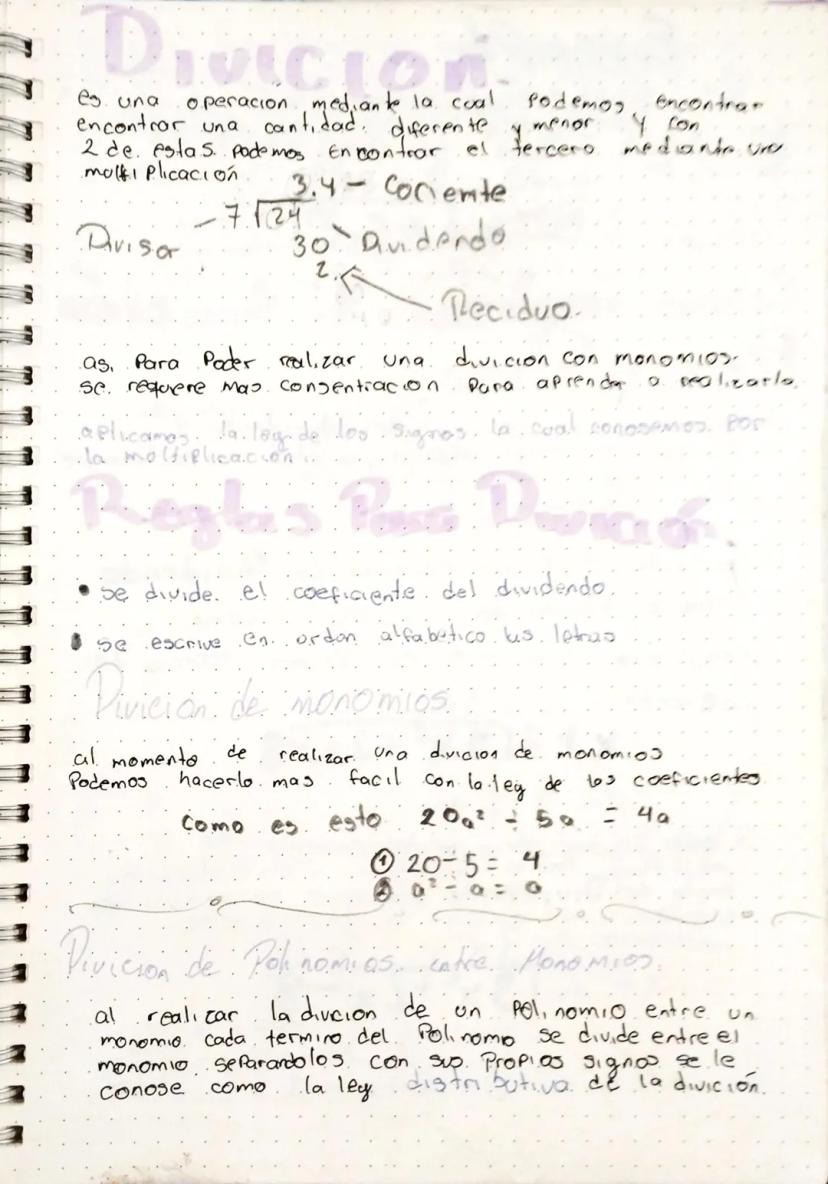 Divicion.
es una operacion mediante la cual podemos encontrar
encontrar una cantidad diferente y menor y con
2 de estas podemos encontrar el tercero mediante una
moltiplicación
3.4 - Cociente
7 √24
Divisor
30 Dividendo
2.
Reciduo.
asi para poder realizar una divicion con monomios.
se requiere mas consentracion para aprender a realizarla
aplicamos la ley de los signos la cual conosemos por
la moltiplicación.
Reglas Para División.
• se divide el coeficiente del dividendo.
• se escrive en ordan alfabetico las letras
Divicion de monomios.
al momento de realizar una divicion de monomios
Podemos hacerlo mas facil con la ley de los coeficientes
como es esto 20a² ÷ 5a = 4a
① 20÷5= 4
② a²÷a= a
Divicion de Polinomios entre Monomios.
al realizar la divicion de un polinomio entre un
monomio cada termino del Polinomo se divide entre el
monomio separandolos con sus propios signos se le
conose como la ley distributiva de la divición.